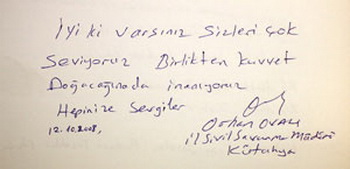 İyi ki varsınız Sizleri çok
Seviyoruz Birlikten kuvvet
Doğacağında inanıyoruz
Hepinize Sevgiler
12.10.2008,
Orhan
il Sivil Savunma Müdürü
Kütahya